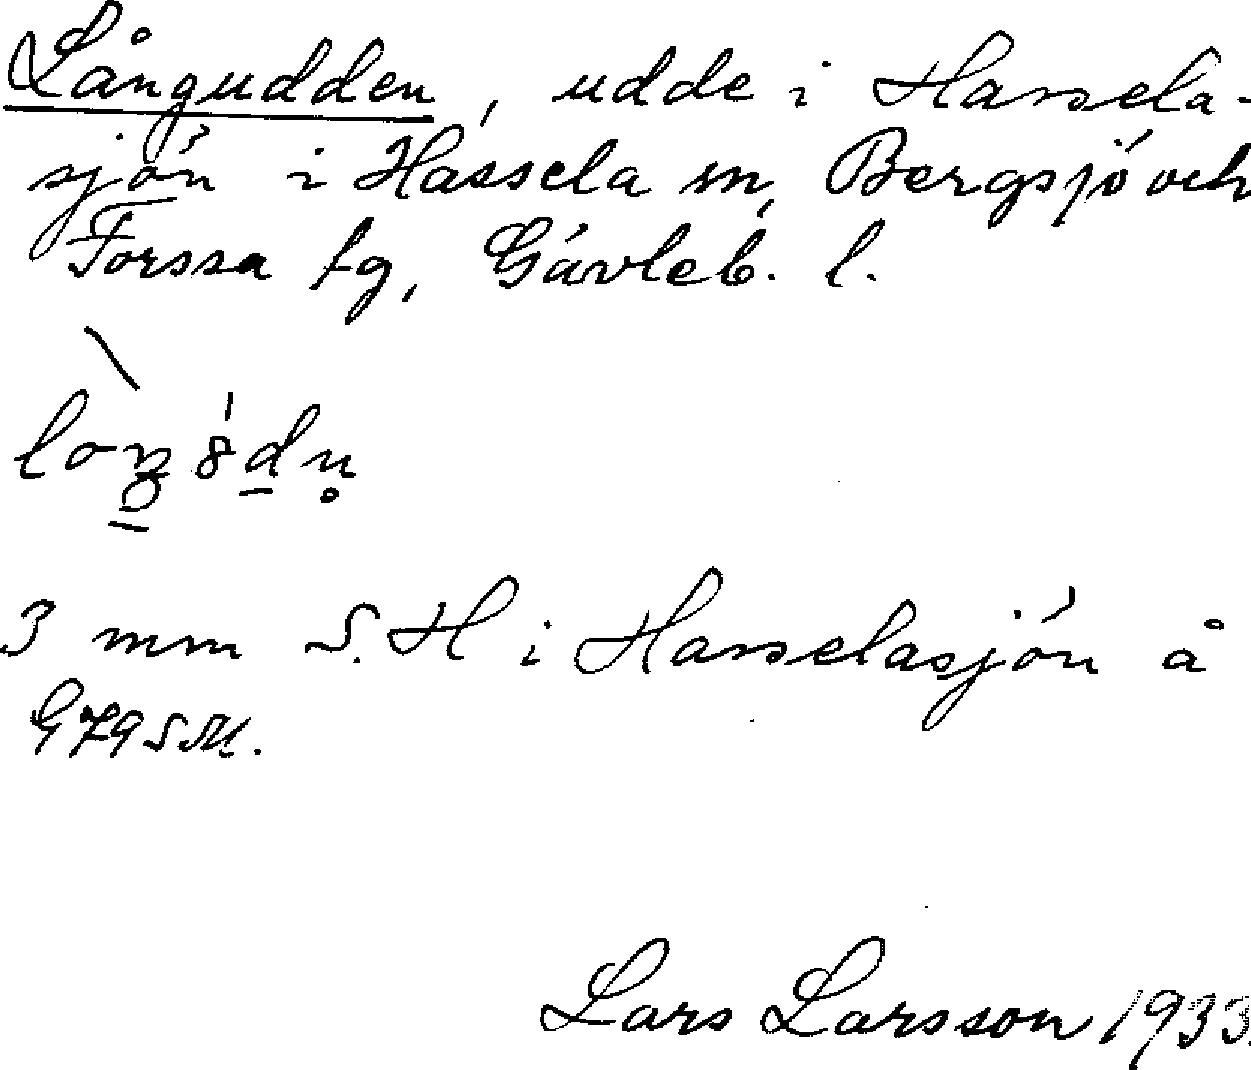 Långudden, udde i Hassela-
sjön i Hassela sn, Bergsjö och
Forssa tg, Gävleb. l.
3 mm S. H i Hasselasjön å
G79SM.
Lars Larsson 1933.